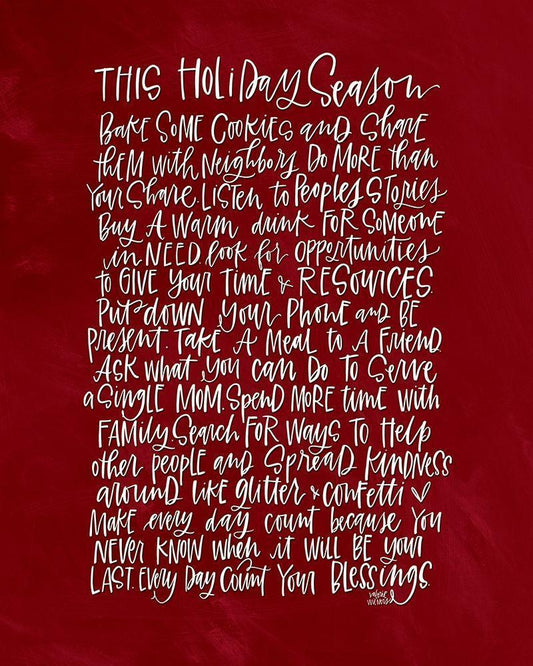 THIS HOLIDAY SEASON
BAKE SOME COOKIES AND SHARE
THEM WITH NEIGHBORS. DO MORE THAN
YOUR SHARE. LISTEN TO PEOPLES STORIES
BUY A WARM DRINK FOR SOMEONE
IN NEED. LOOK FOR OPPORTUNITIES
TO GIVE YOUR TIME & RESOURCES.
PUT DOWN YOUR PHONE AND BE
PRESENT. TAKE A MEAL TO A FRIEND.
ASK WHAT YOU CAN DO TO SERVE
A SINGLE MOM. SPEND MORE TIME WITH
FAMILY. SEARCH FOR WAYS TO HELP
OTHER PEOPLE AND SPREAD KINDNESS
AROUND LIKE GLITTER & CONFETTI ♡
MAKE EVERY DAY COUNT BECAUSE YOU
NEVER KNOW WHEN IT WILL BE YOUR
LAST. EVERY DAY COUNT YOUR BLESSINGS.
valerie